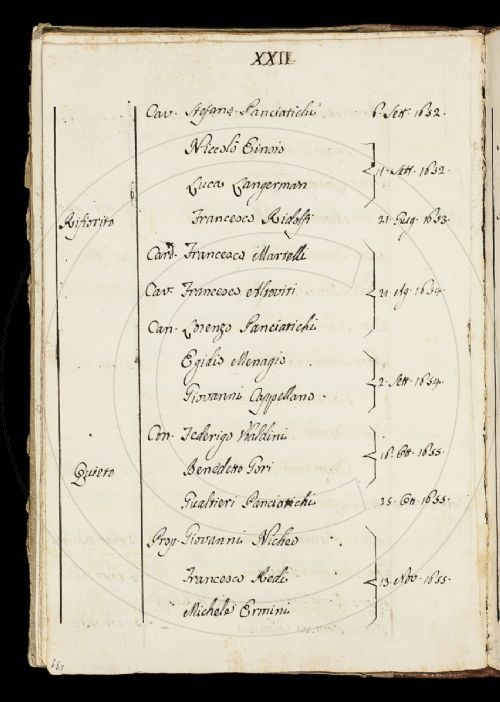 XXII.
Cav. Stefano Panciatichi 6. Sett. 1652.
Niccolò Einsio
Luca Langerman 11. Sett. 1652.
Rifiorito Francesco Ridolfi 21. Giug. 1653.
Card. Francesco Martelli
Cav. Francesco Altoviti 21. Ag. 1654.
Can. Lorenzo Panciatichi
Egidio Menagio
Giovanni Cappellano 2. Sett. 1654.
Con. Federigo Ubaldini
Quieto Benedetto Gori 16. Ott. 1655.
Gualtieri Panciatichi 25. Ott. 1655.
Prop. Giovanni Niches
Francesco Redi 13. Nov. 1655.
Michele Ermini